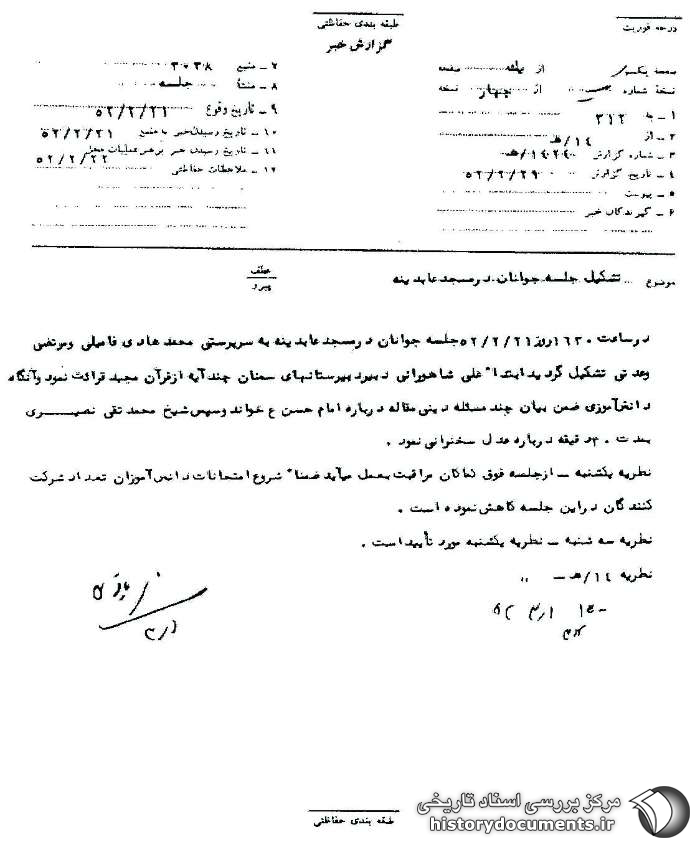 طبقه بندی حفاظتی
گزارش خبر
درجه فوریت
صفحه یکم از یک صفحه
نسخه شماره از چهار نسخه
۱ ـ به ۳۱۲
۲ ـ از ۱۴/هـ
۳ ـ شماره گزارش ۱۴۲۴۰/هـ
۴ ـ تاریخ گزارش ۵۲/۲/۲۹
۵ ـ پیوست
۶ ـ گیرندگان خبر
۷ ـ منبع ۳۰۳۸
۸ ـ منشأ جلسه
۹ ـ تاریخ وقوع ۵۲/۲/۲۱
۱۰ ـ تاریخ رسیدن خبر به منبع ۵۲/۲/۲۱
۱۱ ـ تاریخ رسیدن خبر برهبر عملیات محل ۵۲/۲/۲۲
۱۲ ـ ملاحظات حفاظتی
موضوع تشکیل جلسه جوانان در مسجد عابدینه
عطف
پیرو
در ساعت ۱۶۳۰ روز ۵۲/۲/۲۱ جلسه جوانان در مسجد عابدینه به سرپرستی محمد هادی فامیلی و مرتضی
وعدتی تشکیل گردید ابتدا" علی شاهورانی دبیر دبیرستانهای سمنان چند آیه از قرآن مجید قرائت نمود و آنگاه
دانش‌آموزی ضمن بیان چند مسئله دینی مقاله درباره امام حسن ع خواند و سپس شیخ محمد تقی نصیری
بمدت ۳۰ دقیقه درباره عدل سخنرانی نمود .
نظریه یکشنبه ـ از جلسه فوق کماکان مراقبت بعمل میآید ضمنا" شروع امتحانات دانش‌آموزان تعداد شرکت
کنندگان در این جلسه کاهش نموده است .
نظریه سه شنبه ـ نظریه یکشنبه مورد تأیید است .
نظریه ۱۴/هـ ـ "
طبقه بندی حفاظتی
مرکز بررسی اسناد تاریخی
historydocuments.ir